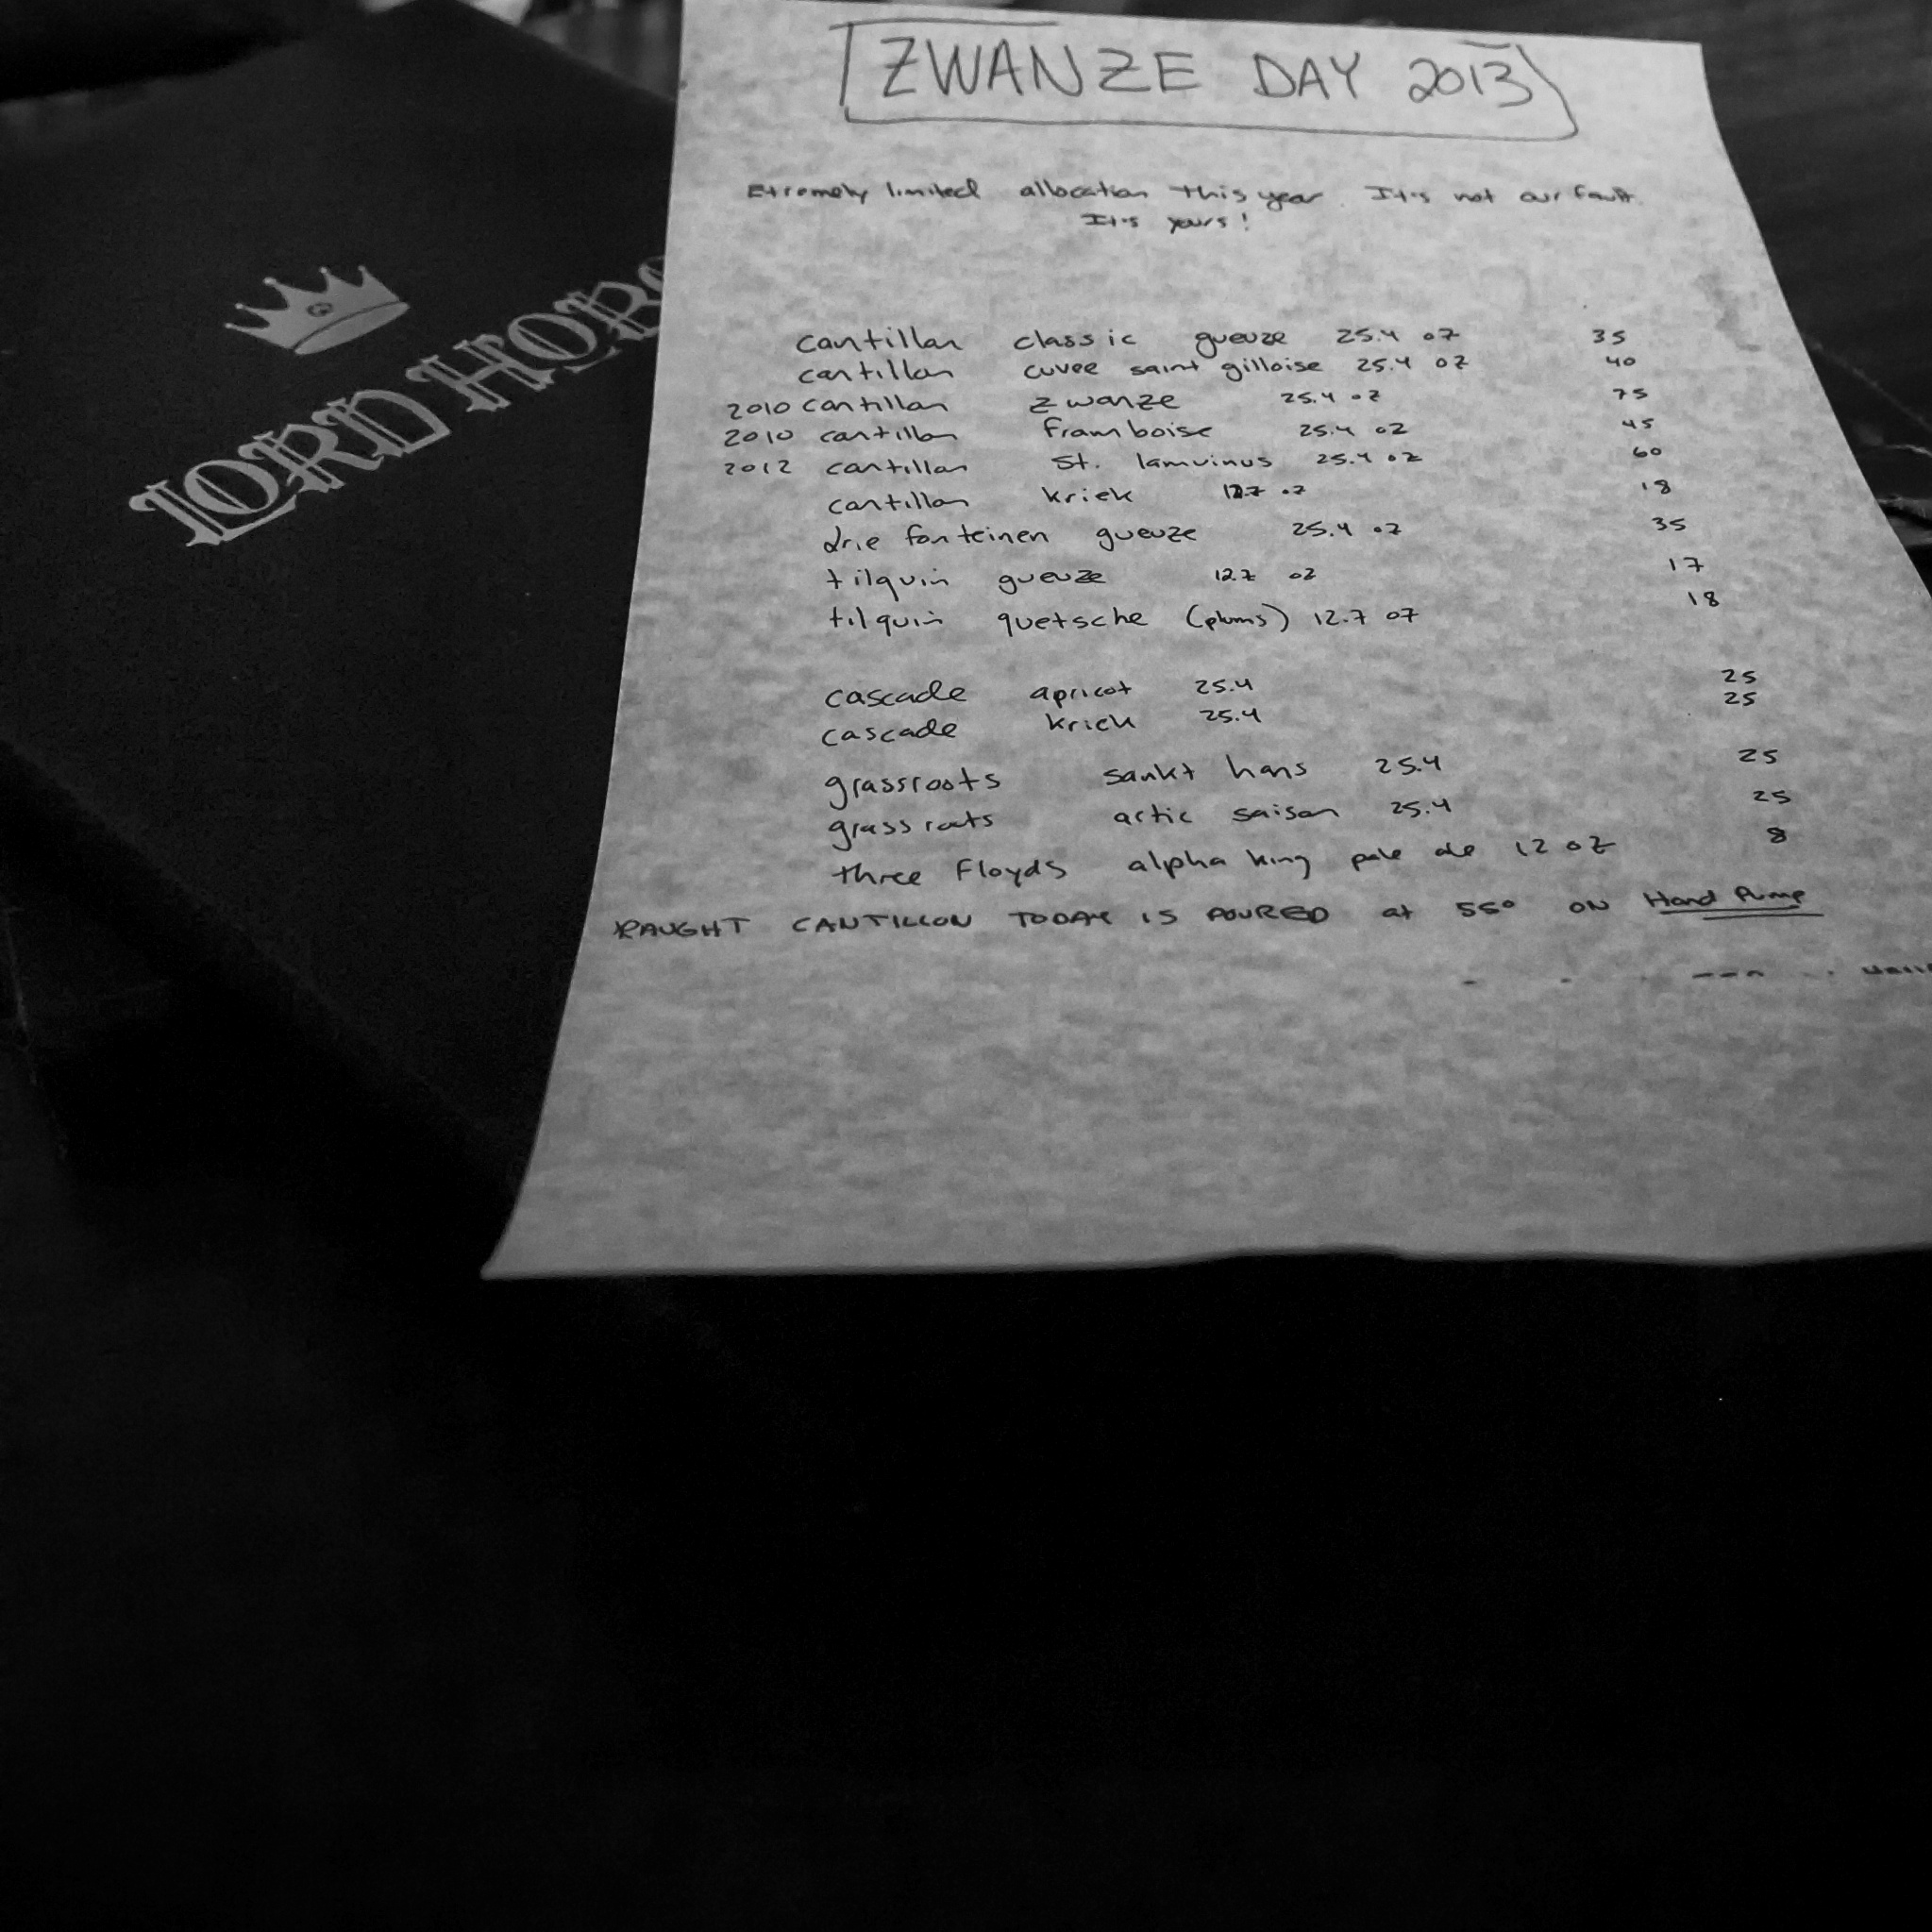 ZWANZE DAY 2013
Etremely limited allocation this year. It's not our fault.
It's yours!
cantillon classic gueuze 25.4 oz 35
cantillon cuvee saint gilloise 25.4 oz 40
2010 cantillon zwanze 25.4 oz 75
2010 cantillon framboise 25.4 oz 45
2012 cantillon st. lamvinus 25.4 oz 60
cantillon kriek 12.7 oz 18
drie fonteinen gueuze 25.4 oz 35
tilquin gueuze 12.7 oz 17
tilquin quetsche (plums) 12.7 oz 18
cascade apricot 25.4 25
cascade kriek 25.4 25
grassroots sankt hans 25.4 25
grassroots artic saison 25.4 25
three Floyds alpha king pale ale 12 oz 8
RAUGHT CANTILLON TODAY IS POURED at 55° ON Hand Pump
LORD HOB